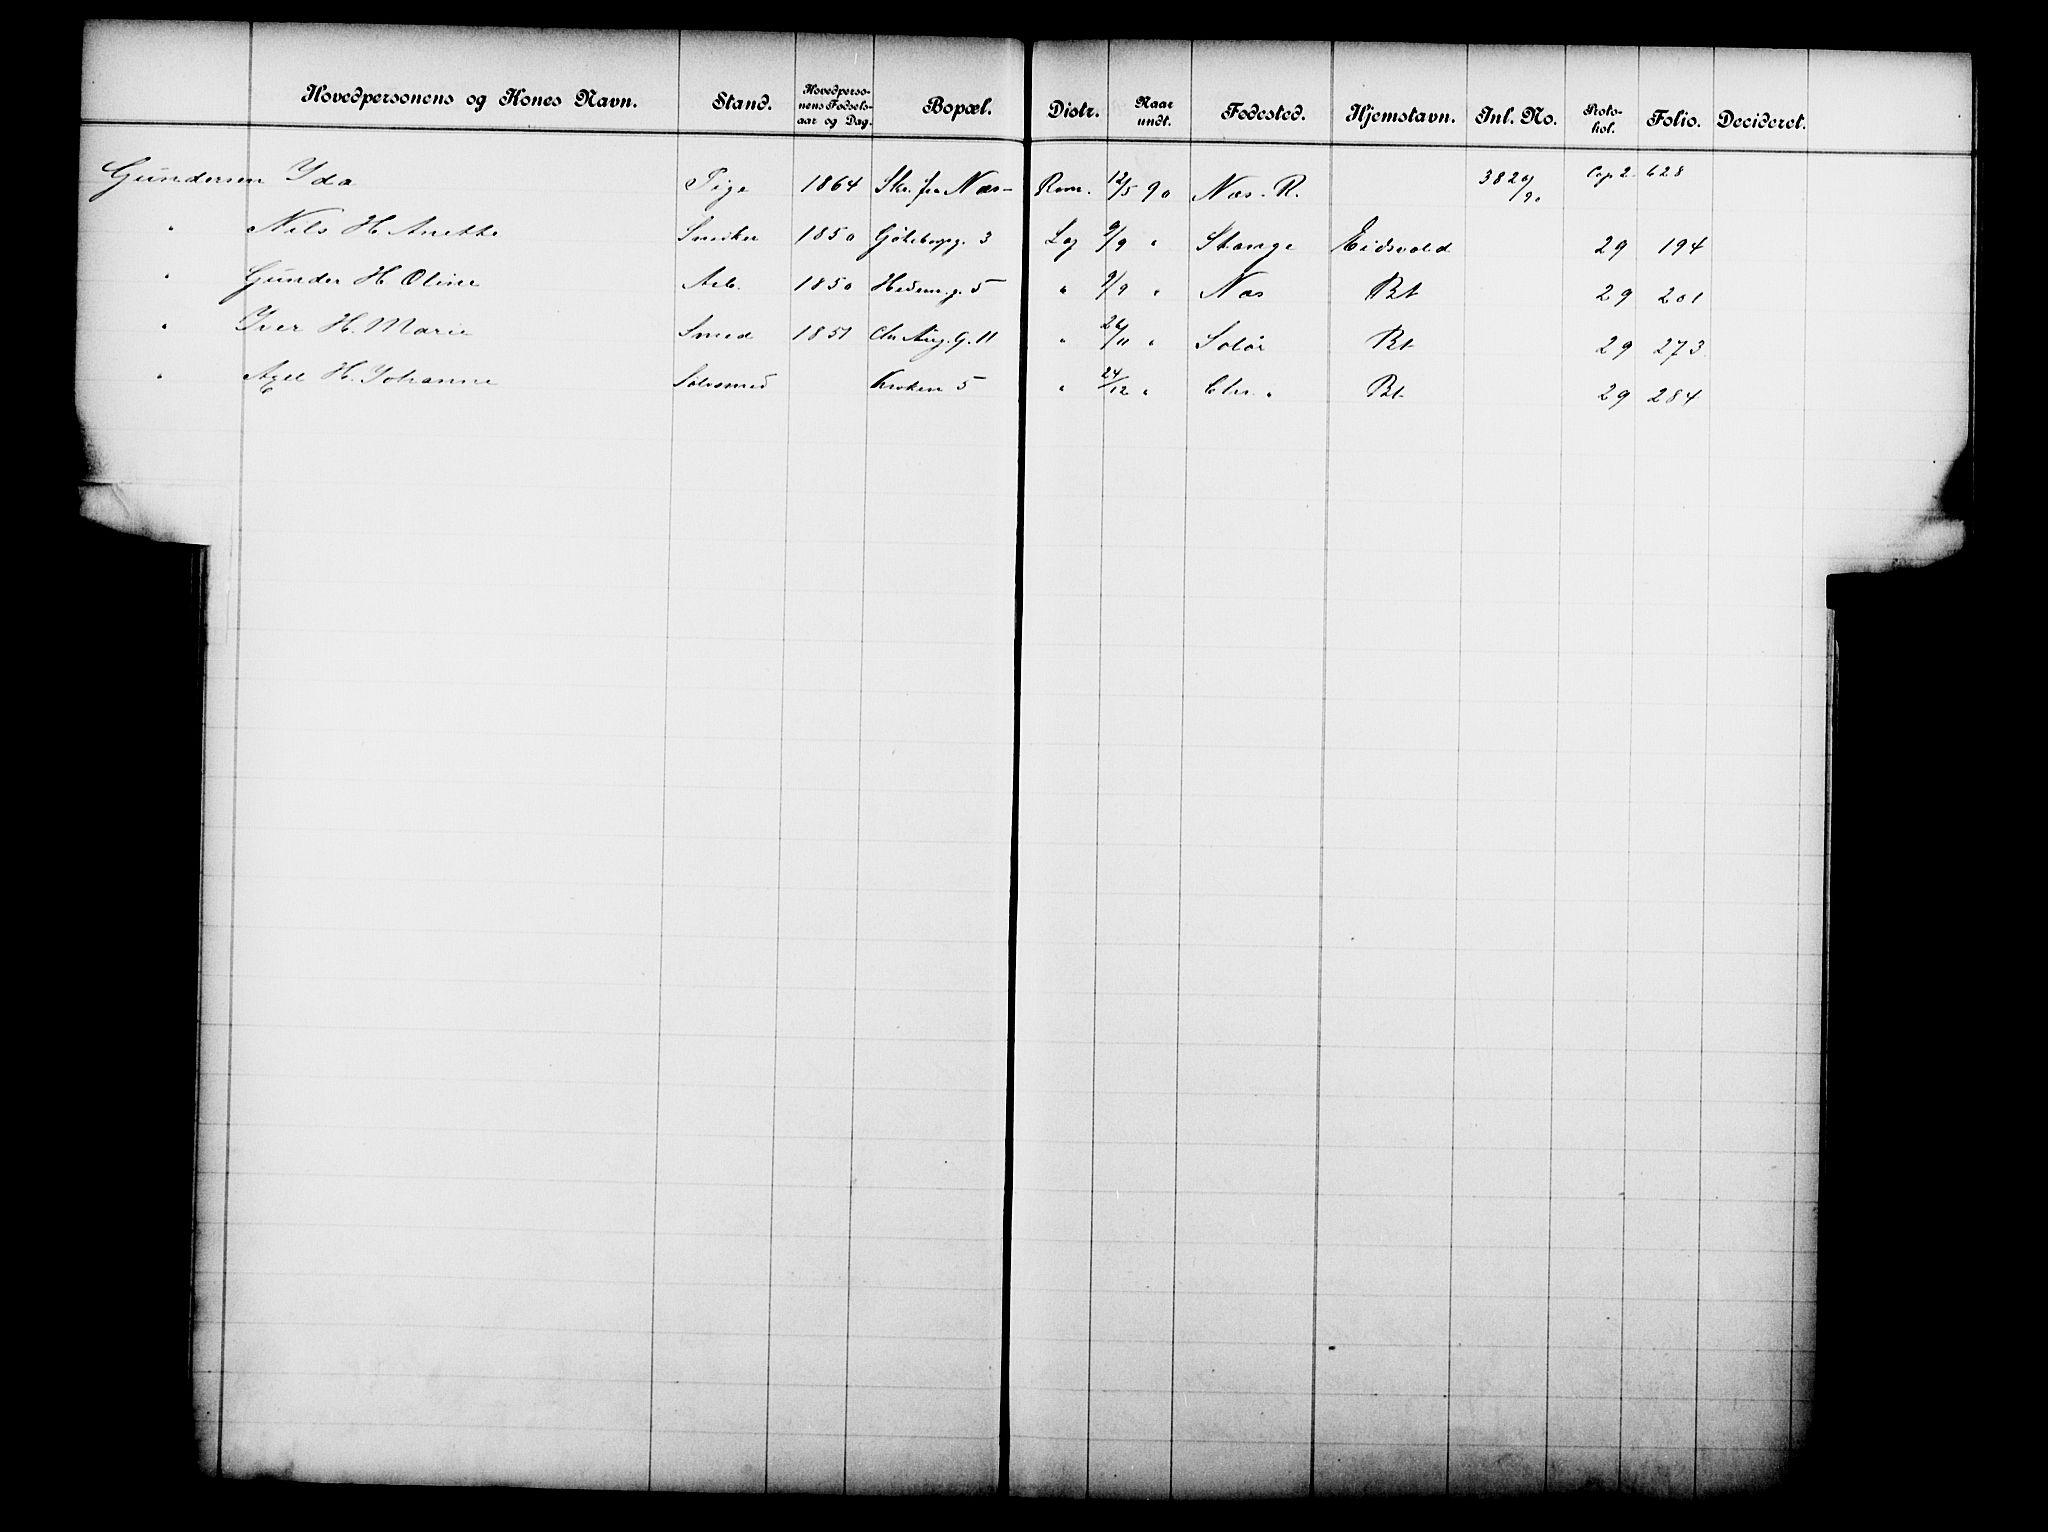 Hovedpersonens og Kones Navn. Stand. Hovedpersonens Fødselsaar og Dag. Bopæl. Distr. Naar undt. Fødested. Hjemstavn. Inl. No. Protokol. Folio. Decideret.
Gundersen Yda Pige 1864 Skr. fra Næs- Rom. 12/5 90 Næs. R. 382 6/90 Cop 2 628
" Nils H Anette Snedker 1850 Göteborgg. 3 Lag 9/9 " Stange Eidsvold 29 194
" Gunder H Oline Arb. 1850 Hedem.g. 5 " 9/9 " Næs Bt 29 201
" Iver H. Marie Smed 1851 Chr Aug. G. 11 " 26/11 " Solör Bt 29 273
" Axel H. Johanne Sølvsmed Kroken 5 " 24/12 " Chr. " Bt 29 284